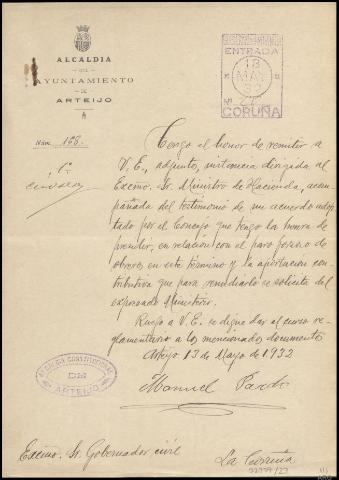 ALCALDIA
DEL
AYUNTAMIENTO
DE
ARTEIJO
ENTRADA
18
MAY
32
Nº
CORUÑA
Núm. 168.
Tengo el honor de remitir a
V. E., adjuntos, instancia dirigida al
Excmo. Sr. Ministro de Hacienda, acom-
pañada del testimonio de un acuerdo adop-
tado por el Concejo que tengo la honra de
presidir, en relacion con el paro forzoso de
obreros en este término y la aportacion con-
tributiva que para remediarlo se solicita del
expresado Ministerio.
Ruego a V. E. se digne dar el curso re-
glamentario a los mencionados documentos
Arteijo 13 de Mayo de 1932
Manuel Pardo
ALCALDIA CONSTITUCIONAL
DM
ARTEIJO
Excmo. Sr. Gobernador civil
La Coruña